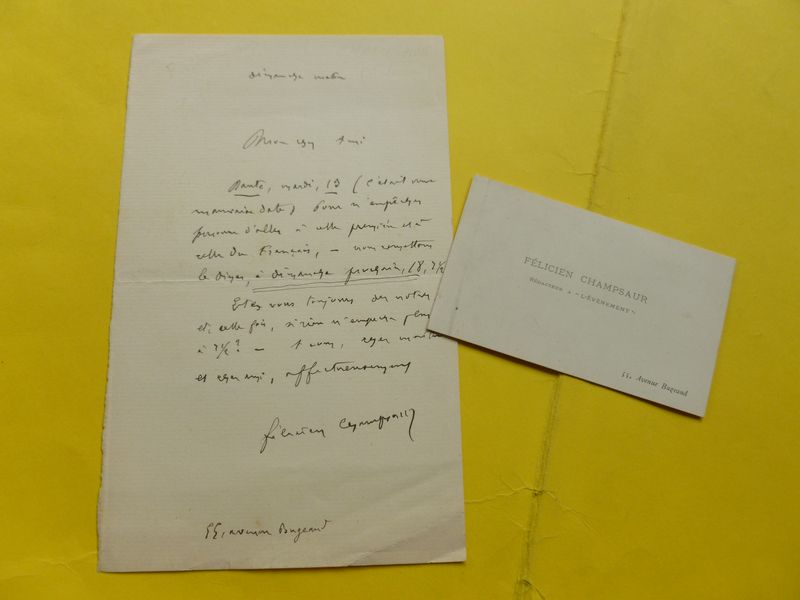 dimanche matin
Mon cher ami
Dante, mardi, 13 (c'était une
mauvaise date) Pour n'empêcher
personne d'aller à cette première et à
celle du Français, — nous remettons
le dîner, à dimanche prochain, 18, 7½
Etes vous toujours des nôtres
et, cette fois, si rien n'empêche plus
à 7½? — A vous, cher maître
et cher ami, affectueusement
Félicien Champsaur
55, avenue Bugeaud
FÉLICIEN CHAMPSAUR
RÉDACTEUR A "L'ÉVÉNEMENT"
55, Avenue Bugeaud